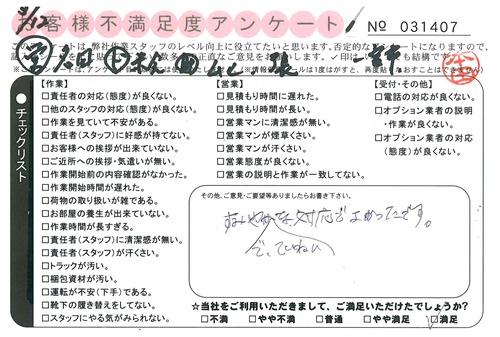 お客様不満足度アンケート
№ 031407
このアンケートは、弊社作業スタッフのレベル向上に役立てたいと思います。否定的なアンケートになりますので、
チェックリスト
【作業】
□責任者の対応(態度)が良くない。
□他のスタッフの対応(態度)が良くない。
□作業を見ていて不安がある。
□責任者(スタッフ)に好感が持てない。
□お客様への挨拶が出来ていない。
□ご近所への挨拶・気遣いが無い。
□作業開始前の内容確認がなかった。
□作業開始時間が遅れた。
□荷物の取り扱いが雑である。
□お部屋の養生が出来ていない。
□作業時間が長すぎる。
□責任者(スタッフ)に清潔感が無い。
□責任者(スタッフ)が汗くさい。
□トラックが汚い。
□梱包資材が汚い。
□運転が不安(下手)である。
□靴下の履き替えをしてない。
□スタッフにやる気がみられない。
【営業】
□見積もり時間に遅れた。
□見積もり時間が長い。
□営業マンに清潔感が無い。
□営業マンが煙草くさい。
□営業マンが汗くさい。
□営業態度が良くない。
□営業の説明と作業が一致してない。
【受付・その他】
□電話の対応が良くない。
□オプション業者の説明
・作業が良くない。
□オプション業者の対応
(態度)が良くない。
その他、ご意見・ご要望等ありましたらお書き下さい。
すみやかな対応でよかったです。
で、ていねい
☆当社をご利用いただきまして、ご満足いただけたでしょうか?
□不満 □やや不満 □普通 □やや満足 □満足